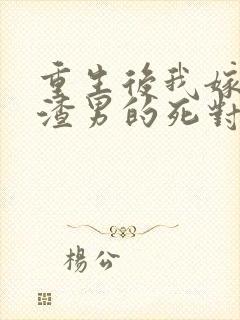 重生後我嫁
渣男的死對
楊公